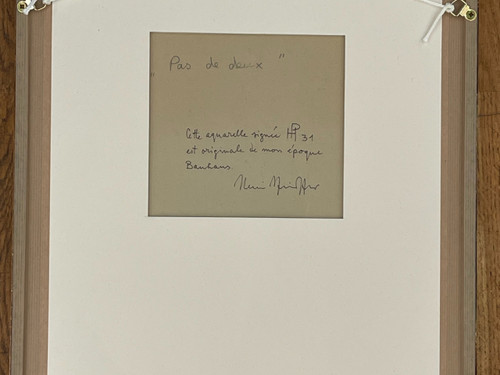 „ Pas de deux "
Cette aquarelle signée HP 31
est originale de mon époque
Bauhaus.